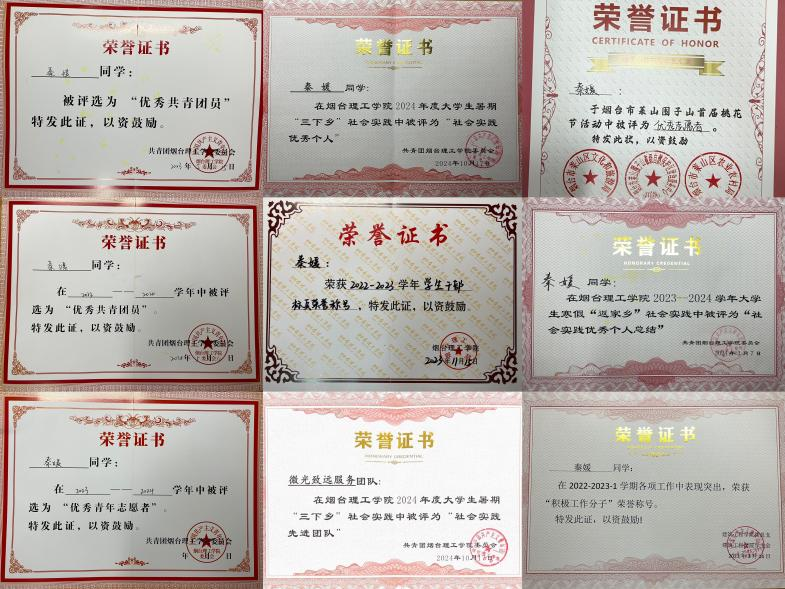 荣誉证书
秦媛 同学：
被评选为 “优秀共青团员”
特发此证，以资鼓励。
共青团烟台理工学院委员会
2023年
荣誉证书
HONORARY CREDENTIAL
秦媛 同学：
在烟台理工学院2024年度大学生暑期
“三下乡” 社会实践中被评为 “社会实践
优秀个人”
共青团烟台理工学院委员会
2024年10月17日
荣誉证书
CERTIFICATE OF HONOR
秦媛：
于烟台市莱山围子山首届桃花
节活动中被评为 优秀志愿者 。
特发此状，以资鼓励
烟台市莱山区文化和旅游局
烟台市莱山区农业农村局
荣誉证书
秦媛 同学：
在 2023 —— 2024 学年中被评
选为 “优秀共青团员”。
特发此证，以资鼓励。
共青团烟台理工学院委员会
荣誉证书
秦媛：
荣获 2022-2023 学年 学生干部
标兵荣誉称号，特发此证，以资鼓励。
烟台理工学院
2023年11月15日
荣誉证书
HONORARY CREDENTIAL
秦媛 同学：
在烟台理工学院2023—2024学年大学
生寒假 “返家乡” 社会实践中被评为 “社
会实践优秀个人总结”
共青团烟台理工学院委员会
月7日
荣誉证书
秦媛 同学：
在 2023 —— 2024 学年中被评
选为 “优秀青年志愿者”。
特发此证，以资鼓励。
共青团烟台理工学院委员会
荣誉证书
HONORARY CREDENTIAL
微光致远服务团队：
在烟台理工学院2024年度大学生暑期
“三下乡” 社会实践中被评为 “社会实践
先进团队”
共青团烟台理工学院委员会
2024年10月17日
荣誉证书
秦媛 同学：
在 2022-2023-1 学期各项工作中表现突出，荣获
“积极工作分子” 荣誉称号。
特发此证，以资鼓励!